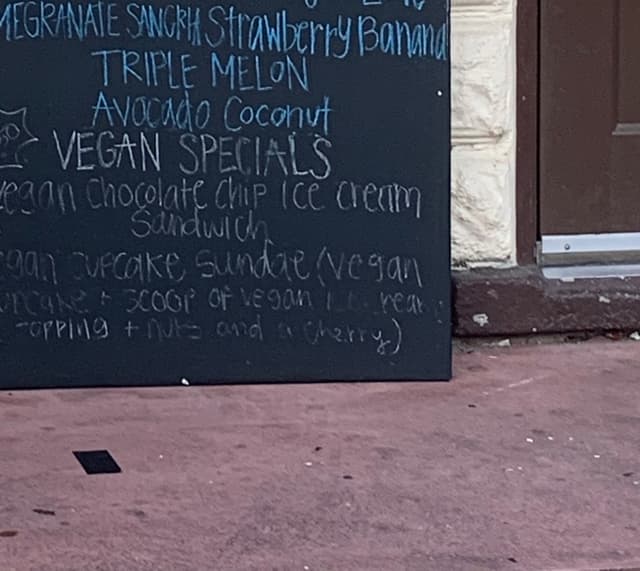 MEGRANATE SANGRIA Strawberry Banana
TRIPLE MELON
AVOCADO COCONUT
VEGAN SPECIALS
vegan chocolate chip ice cream
Sandwich
egan cupcake sundae (vegan
upcake + scoop of vegan ice cream
topping + nuts and a cherry)